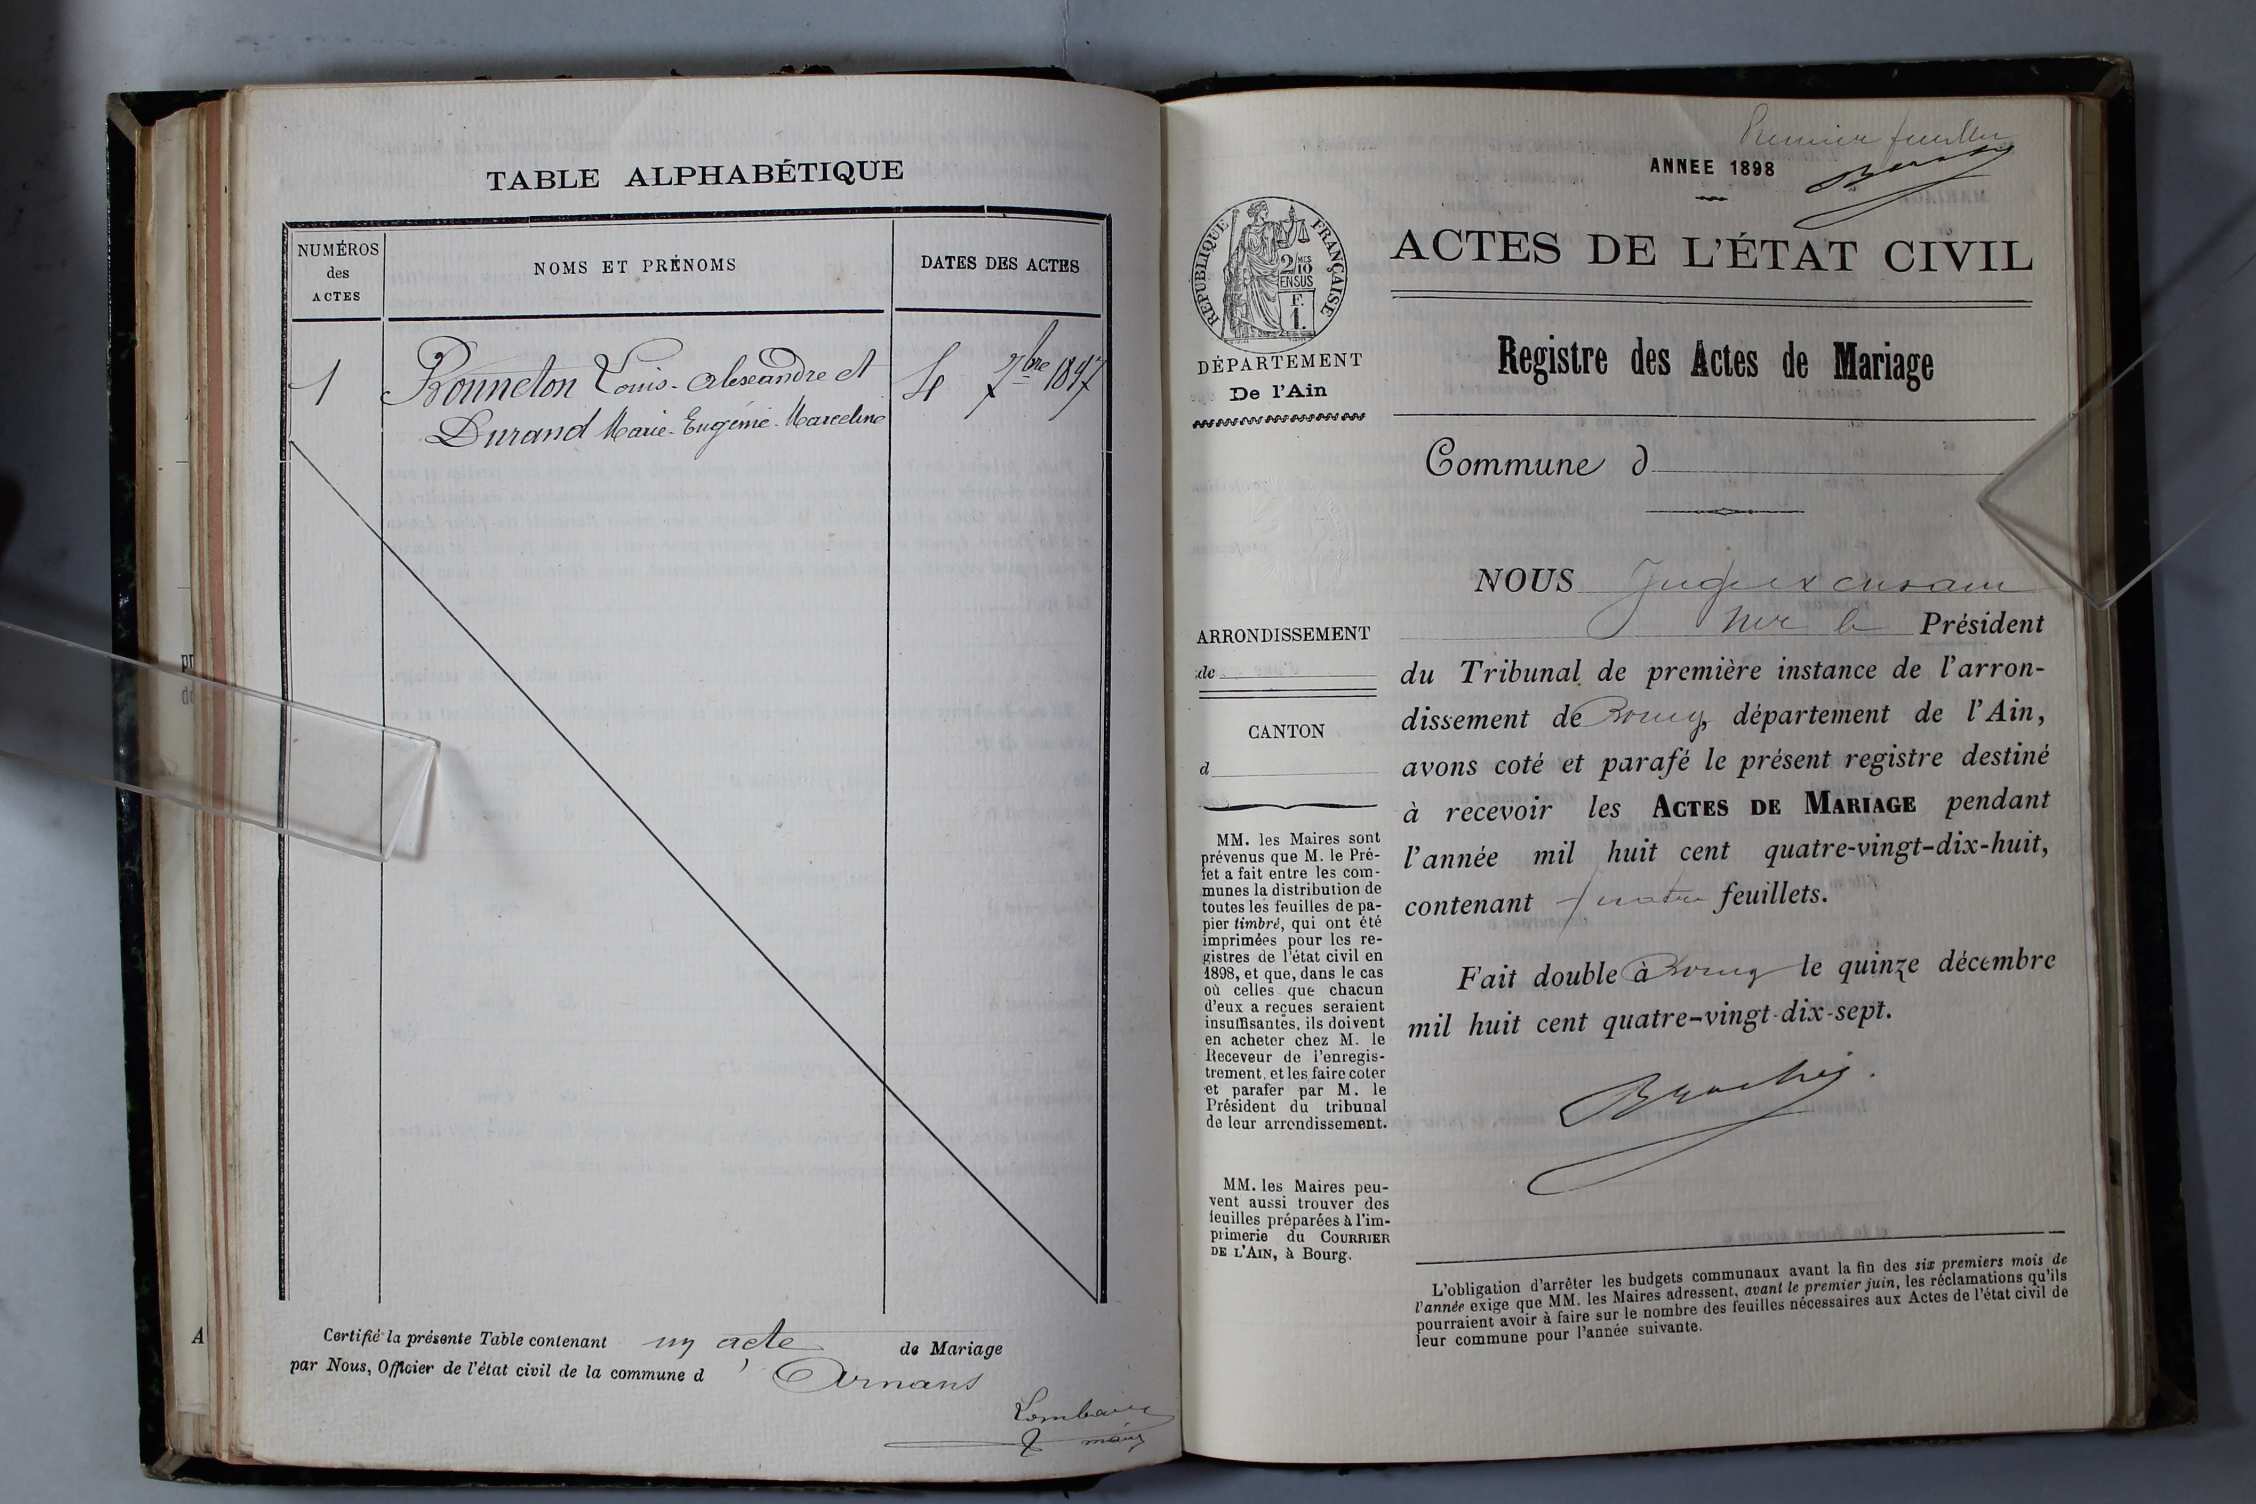 TABLE ALPHABÉTIQUE
NUMÉROS
des
ACTES
NOMS ET PRÉNOMS
DATES DES ACTES
1
Bonneton Louis-Alexandre et
4 7bre 1897
Durand Marie-Eugénie-Marceline
Certifié la présente Table contenant un acte de Mariage
par Nous, Officier de l'état civil de la commune d'Arnans
maire
Premier feuillet
ANNEE 1898
RÉPUBLIQUE FRANÇAISE
2/10
MES
EN SUS
F.
1.
ACTES DE L'ÉTAT CIVIL
Registre des Actes de Mariage
DÉPARTEMENT
De l'Ain
Commune d
ARRONDISSEMENT
de
CANTON
d
MM. les Maires sont
prévenus que M. le Pré-
fet a fait entre les com-
munes la distribution de
toutes les feuilles de pa-
pier timbré, qui ont été
imprimées pour les re-
gistres de l'état civil en
1898, et que, dans le cas
où celles que chacun
d'eux a reçues seraient
insuffisantes, ils doivent
en acheter chez M. le
Receveur de l'enregis-
trement, et les faire coter
et parafer par M. le
Président du tribunal
de leur arrondissement.
MM. les Maires peu-
vent aussi trouver des
feuilles préparées à l'im-
primerie du COURRIER
DE L'AIN, à Bourg.
NOUS Juge
le Président
du Tribunal de première instance de l'arron-
dissement de Bourg, département de l'Ain,
avons coté et parafé le présent registre destiné
à recevoir les ACTES DE MARIAGE pendant
l'année mil huit cent quatre-vingt-dix-huit,
contenant quatre feuillets.
Fait double à Bourg le quinze décembre
mil huit cent quatre-vingt-dix-sept.
L'obligation d'arrêter les budgets communaux avant la fin des six premiers mois de
l'année exige que MM. les Maires adressent, avant le premier juin, les réclamations qu'ils
pourraient avoir à faire sur le nombre des feuilles nécessaires aux Actes de l'état civil de
leur commune pour l'année suivante.